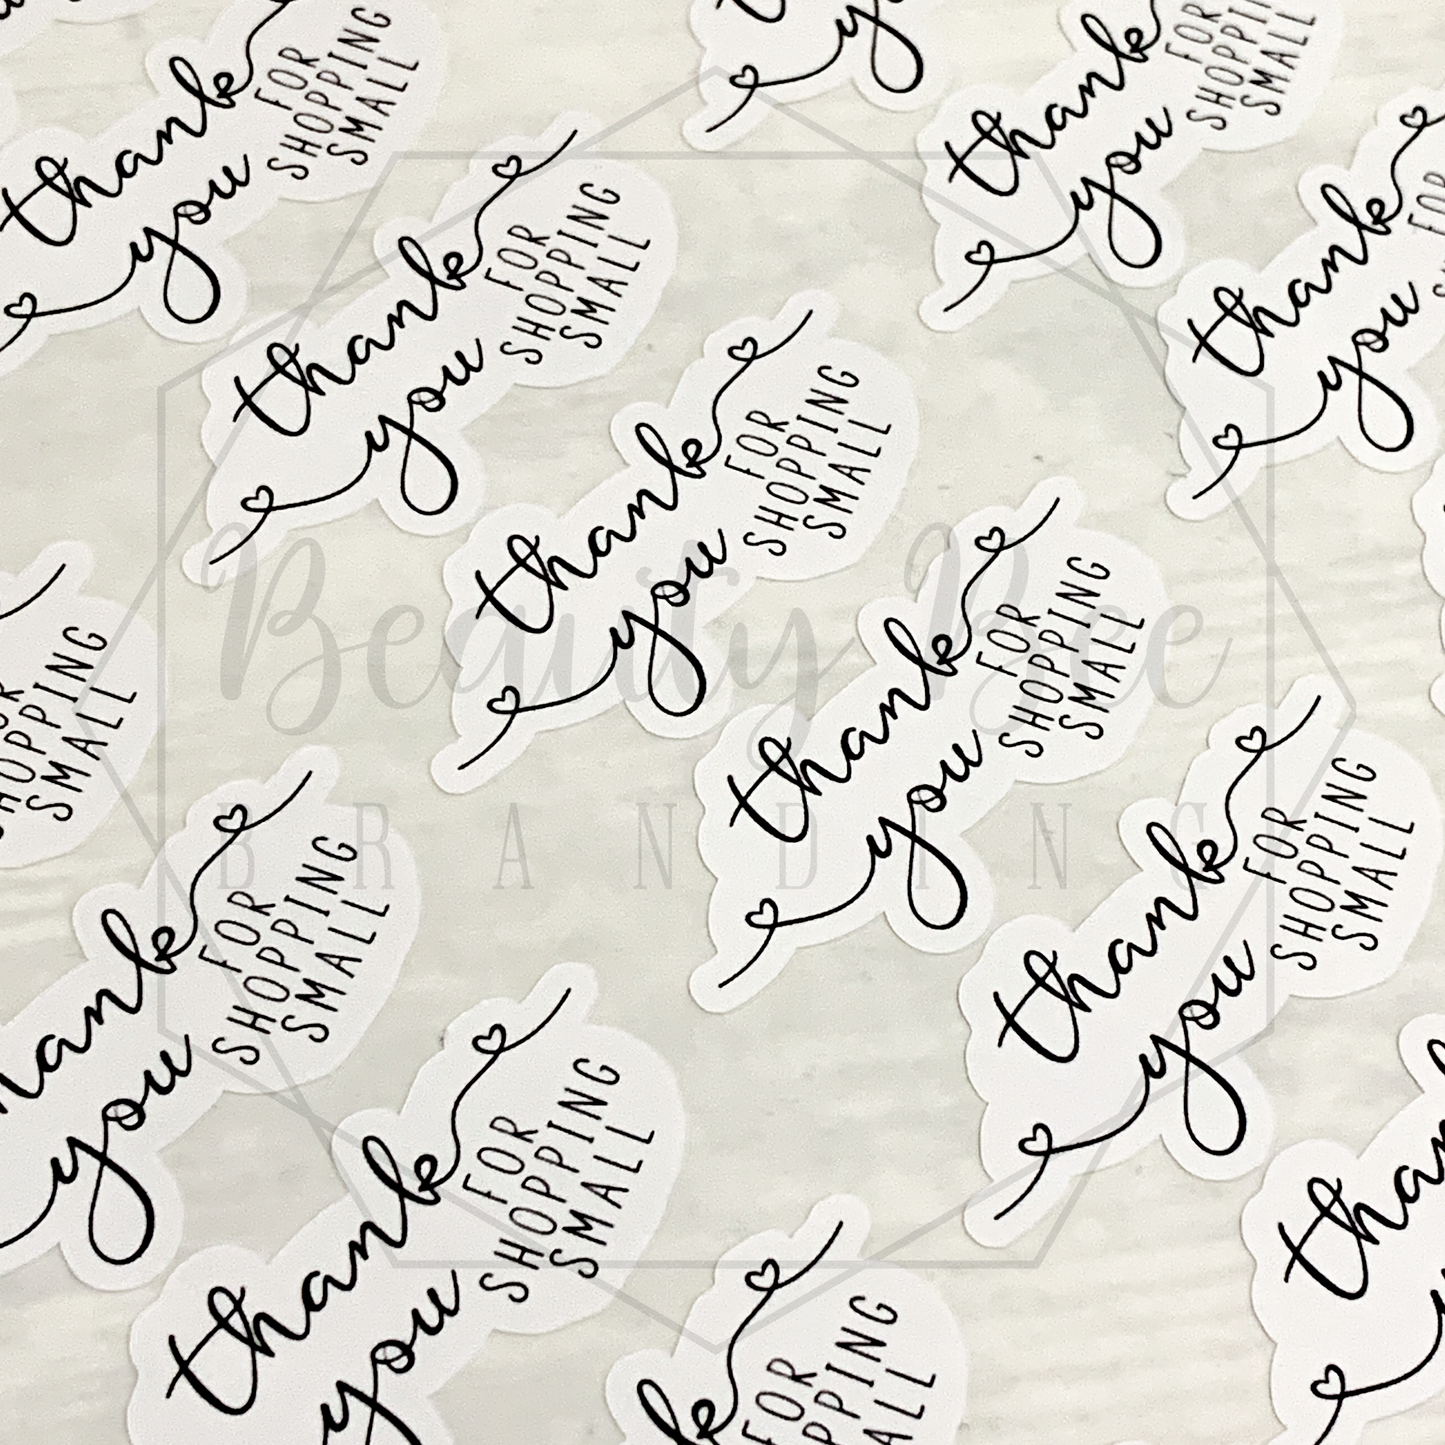 thank
you
FOR
SHOPPING
SMALL
thank
you
FOR
SHOPPING
SMALL
thank
you
FOR
SHOPPING
SMALL
thank
you
FOR
SHOPPING
SMALL
thank
you
FOR
SHOPPING
SMALL
thank
you
FOR
SHOPPING
SMALL
thank
you
FOR
SHOPPING
SMALL
thank
you
FOR
SHOPPING
SMALL
thank
you
Beauty Bee
BRANDING